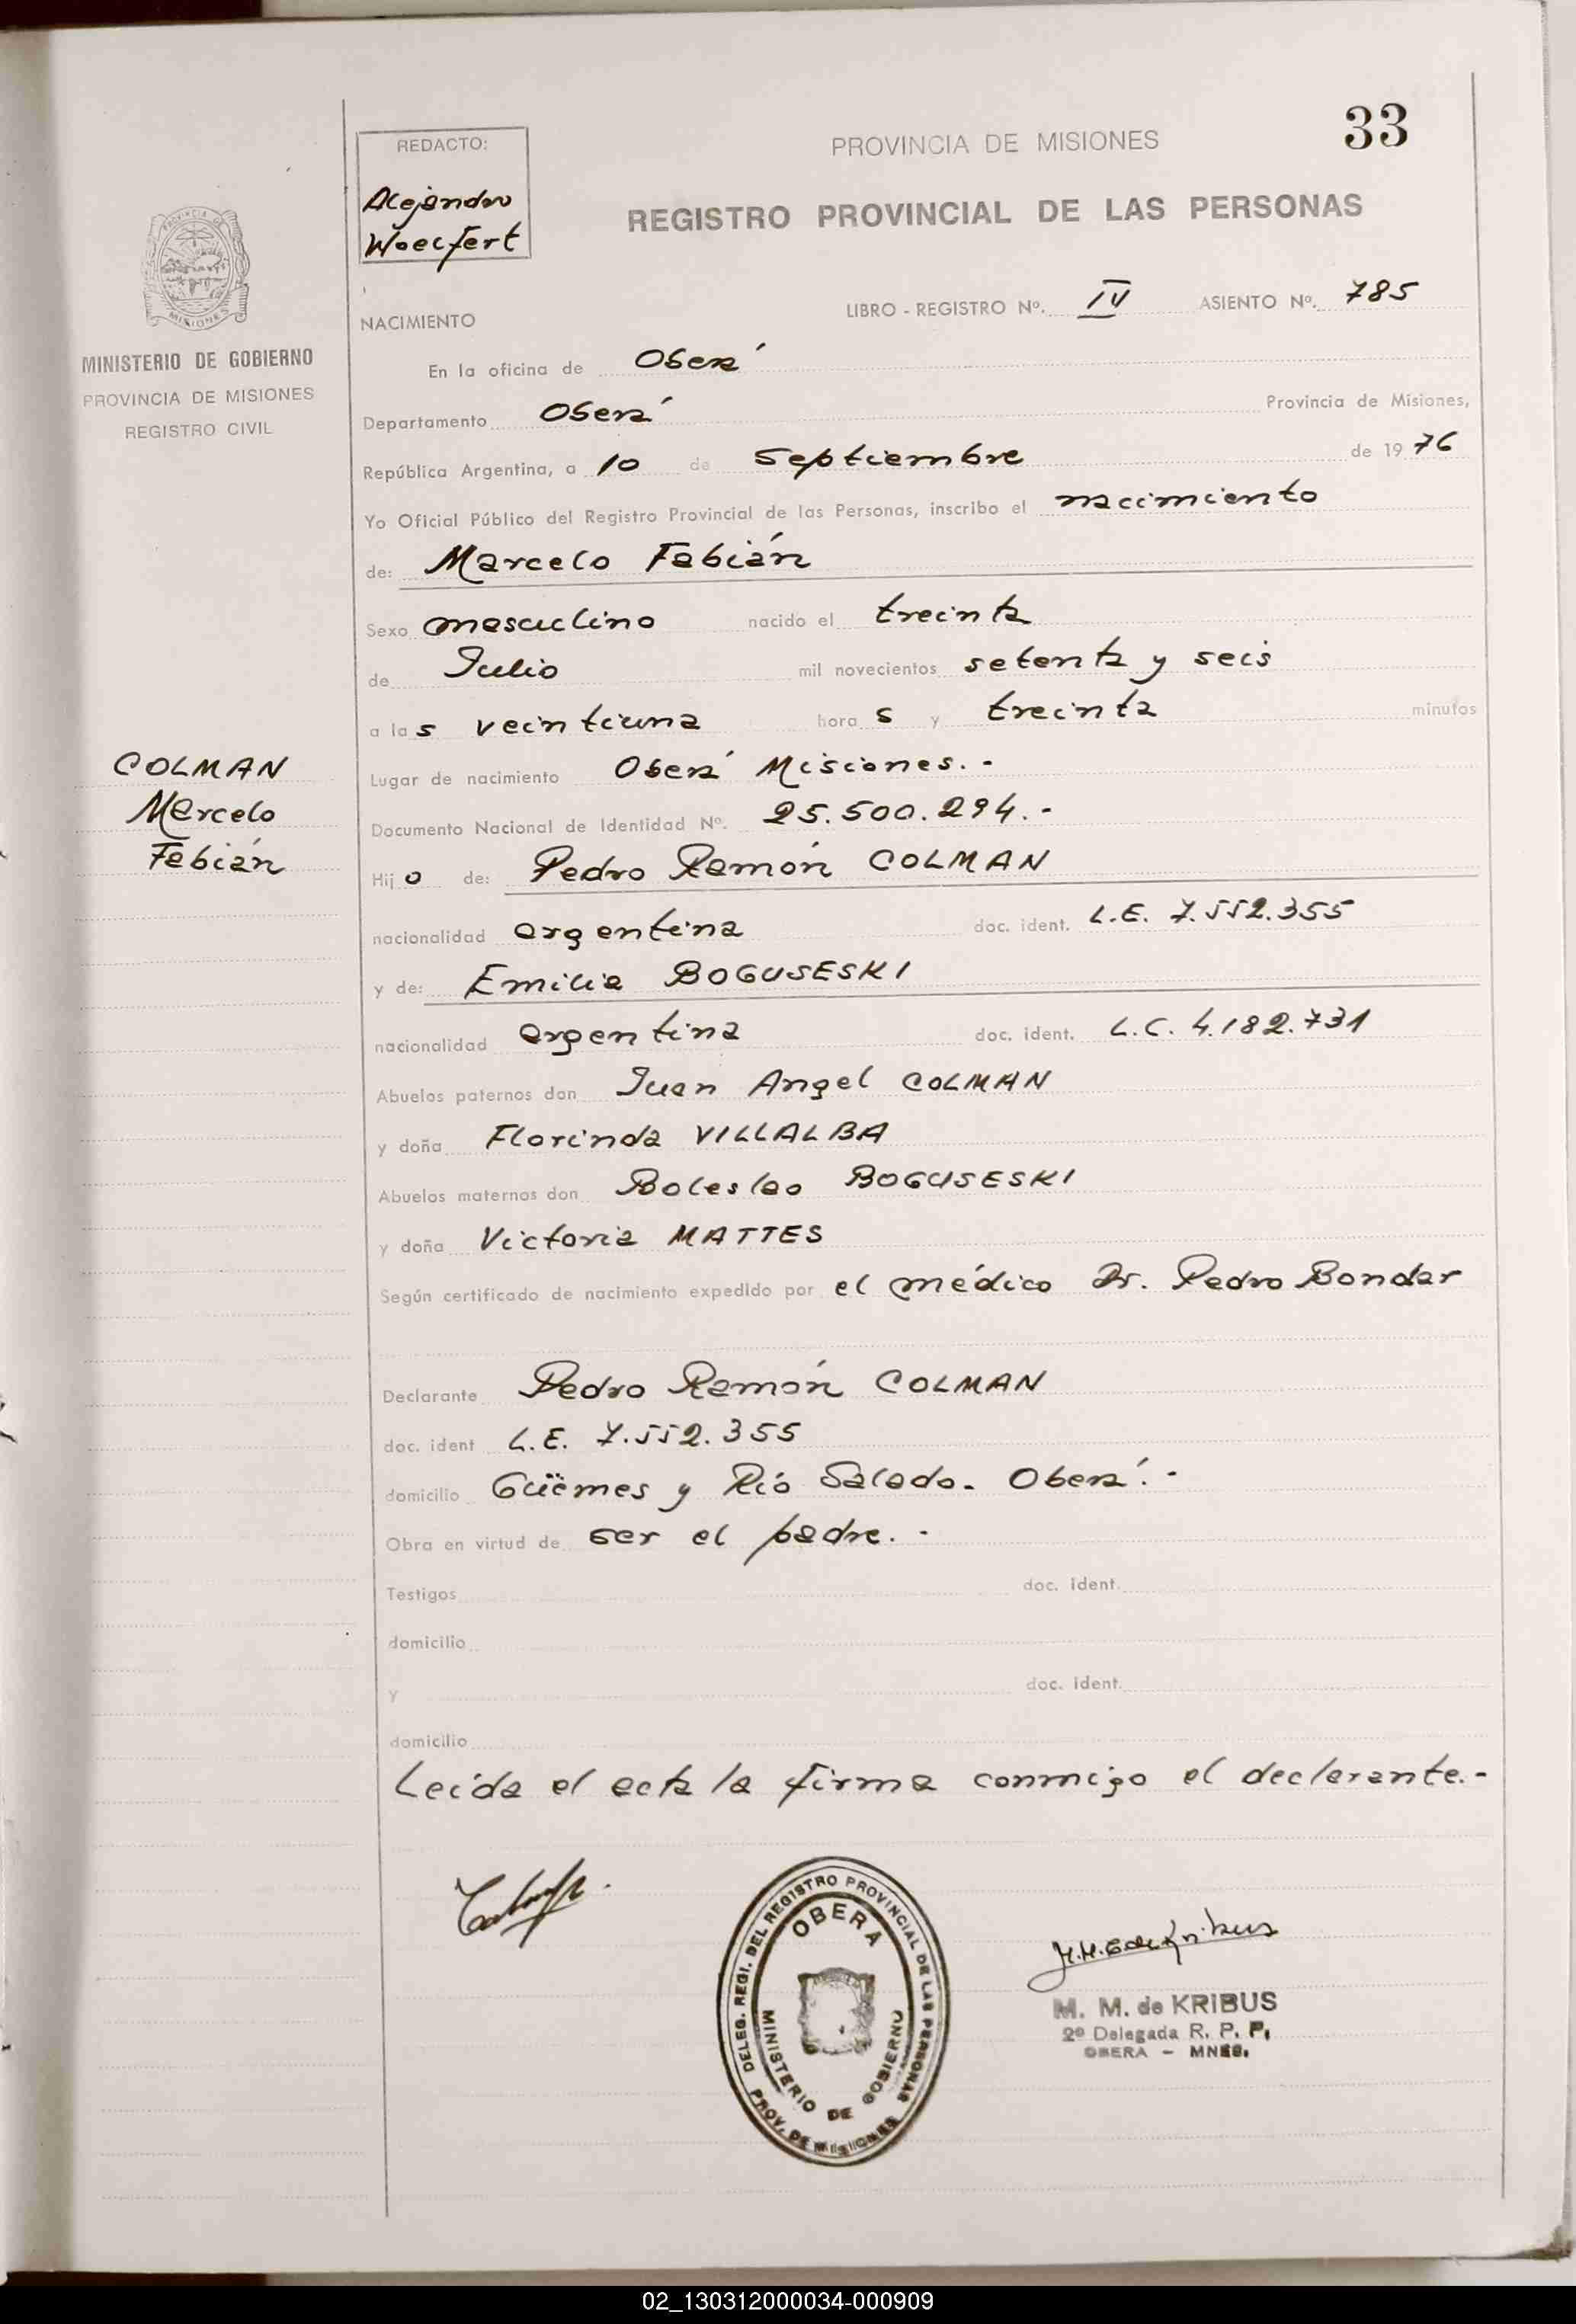 33
REDACTO:
Alejandro
Woelfert
PROVINCIA DE MISIONES
REGISTRO PROVINCIAL DE LAS PERSONAS
PROVINCIA DE
MISIONES
MINISTERIO DE GOBIERNO
PROVINCIA DE MISIONES
REGISTRO CIVIL
COLMAN
Marcelo
Fabián
LIBRO - REGISTRO Nº. IV ASIENTO Nº. 785
NACIMIENTO
En la oficina de Oberá
Departamento Oberá Provincia de Misiones,
República Argentina, a 10 de Septiembre de 1976
Yo Oficial Público del Registro Provincial de las Personas, inscribo el nacimiento
de: Marcelo Fabián
Sexo masculino nacido el treinta
de Julio mil novecientos setenta y seis
a las veintiuna horas y treinta minutos
Lugar de nacimiento Oberá Misiones.-
Documento Nacional de Identidad Nº. 25.500.294.-
Hijo de: Pedro Ramón COLMAN
nacionalidad argentina doc. ident. L.E. 7.552.355
y de: Emilia BOGUSESKI
nacionalidad argentina doc. ident. L.C. 4.182.731
Abuelos paternos don Juan Angel COLMAN
y doña Florinda VILLALBA
Abuelos maternos don Boleslao BOGUSESKI
y doña Victoria MATTES
Según certificado de nacimiento expedido por el médico Dr. Pedro Bondar
Declarante Pedro Ramón COLMAN
doc. ident L.E. 7.552.355
domicilio Güemes y Río Salado. Oberá.-
Obra en virtud de ser el padre.-
Testigos doc. ident.
domicilio
y doc. ident.
domicilio
Leída el acta la firma conmigo el declarante.-
DELEG. REGI. DEL REGISTRO PROVINCIAL DE LAS PERSONAS
OBERA
MINISTERIO DE GOBIERNO
PROV. DE MISIONES
M. M. de KRIBUS
2º Delegada R. P. P.
OBERA - MNES.
02_130312000034-000909